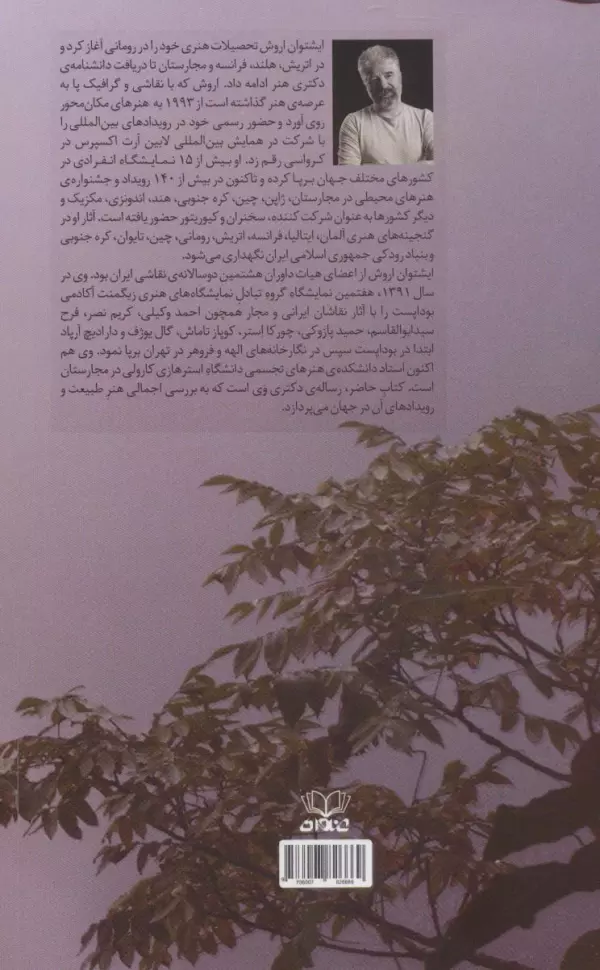 ایشتوان اروش تحصیلات هنری خود را در رومانی آغاز کرد و
در اتریش، هلند، فرانسه و مجارستان تا دریافت دانشنامه‌ی
دکتری هنر ادامه داد. اروش که با نقاشی و گرافیک پا به
عرصه‌ی هنر گذاشته است از ۱۹۹۳ به هنرهای مکان‌محور
روی آورد و حضور رسمی خود در رویدادهای بین‌المللی را
با شرکت در همایش بین‌المللی لابین آرت اکسپرس در
کرواسی رقم زد. او بیش از ۱۵ نمایشگاه انفرادی در
کشورهای مختلف جهان برپا کرده و تاکنون در بیش از ۱۴۰ رویداد و جشنواره‌ی
هنرهای محیطی در مجارستان، ژاپن، چین، کره جنوبی، هند، اندونزی، مکزیک و
دیگر کشورها به عنوان شرکت کننده، سخنران و کیوریتور حضور یافته است. آثار او در
گنجینه‌های هنری آلمان، ایتالیا، فرانسه، اتریش، رومانی، چین، تایوان، کره جنوبی
و بنیاد رودکی جمهوری اسلامی ایران نگهداری می‌شود.
ایشتوان اروش از اعضای هیات داوران هشتمین دوسالانه‌ی نقاشی ایران بود. وی در
سال ۱۳۹۱، هفتمین نمایشگاه گروه تبادل نمایشگاه‌های هنری زیگمنت آکادمی
بوداپست را با آثار نقاشان ایرانی و مجار همچون احمد وکیلی، کریم نصر، فرح
سیدابوالقاسم، حمید پازوکی، چورکا استر، کوپاز تاماش، گال یوژف و دارادیچ آرپاد
ابتدا در بوداپست سپس در نگارخانه‌های الهه و فروهر در تهران برپا نمود. وی هم
اکنون استاد دانشکده‌ی هنرهای تجسمی دانشگاه استرهازی کارولی در مجارستان
است. کتاب حاضر، رساله‌ی دکتری وی است که به بررسی اجمالی هنر طبیعت و
رویدادهای آن در جهان می‌پردازد.